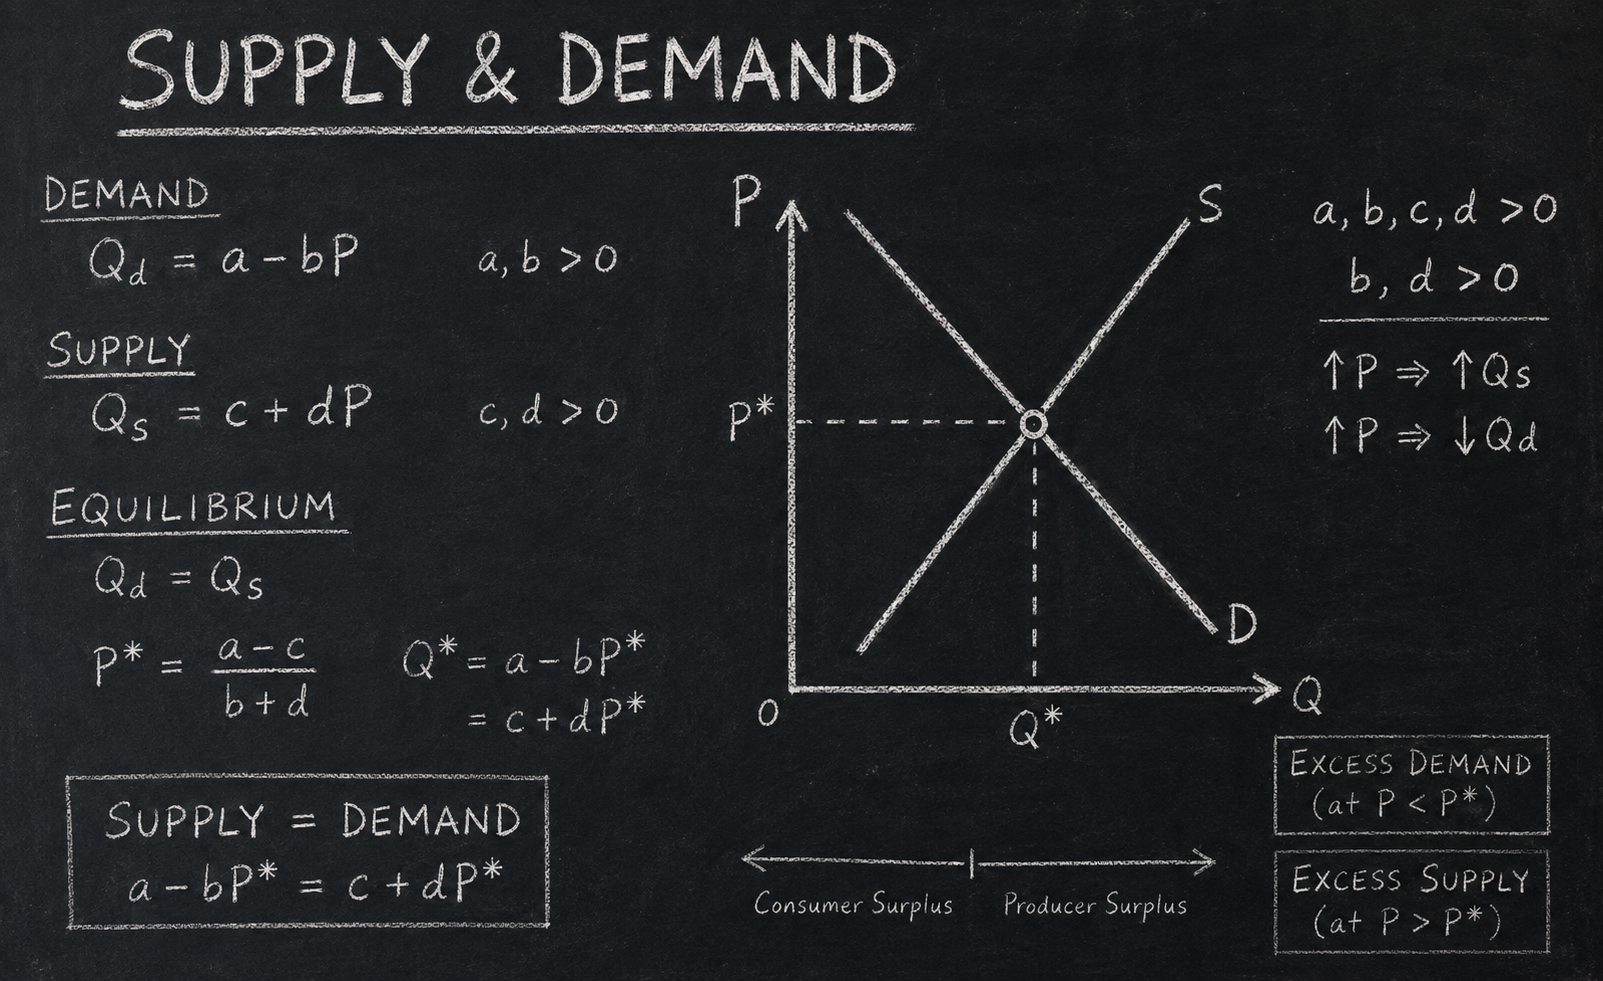 SUPPLY & DEMAND
DEMAND
Qd = a - bP    a, b > 0
SUPPLY
Qs = c + dP    c, d > 0
EQUILIBRIUM
Qd = Qs
P* = (a - c) / (b + d)
Q* = a - bP*
= c + dP*
SUPPLY = DEMAND
a - bP* = c + dP*
P
S
P*
D
O
Q*
Q
Consumer Surplus
Producer Surplus
a, b, c, d > 0
b, d > 0
↑P ⇒ ↑Qs
↑P ⇒ ↓Qd
EXCESS DEMAND
(at P < P*)
EXCESS SUPPLY
(at P > P*)